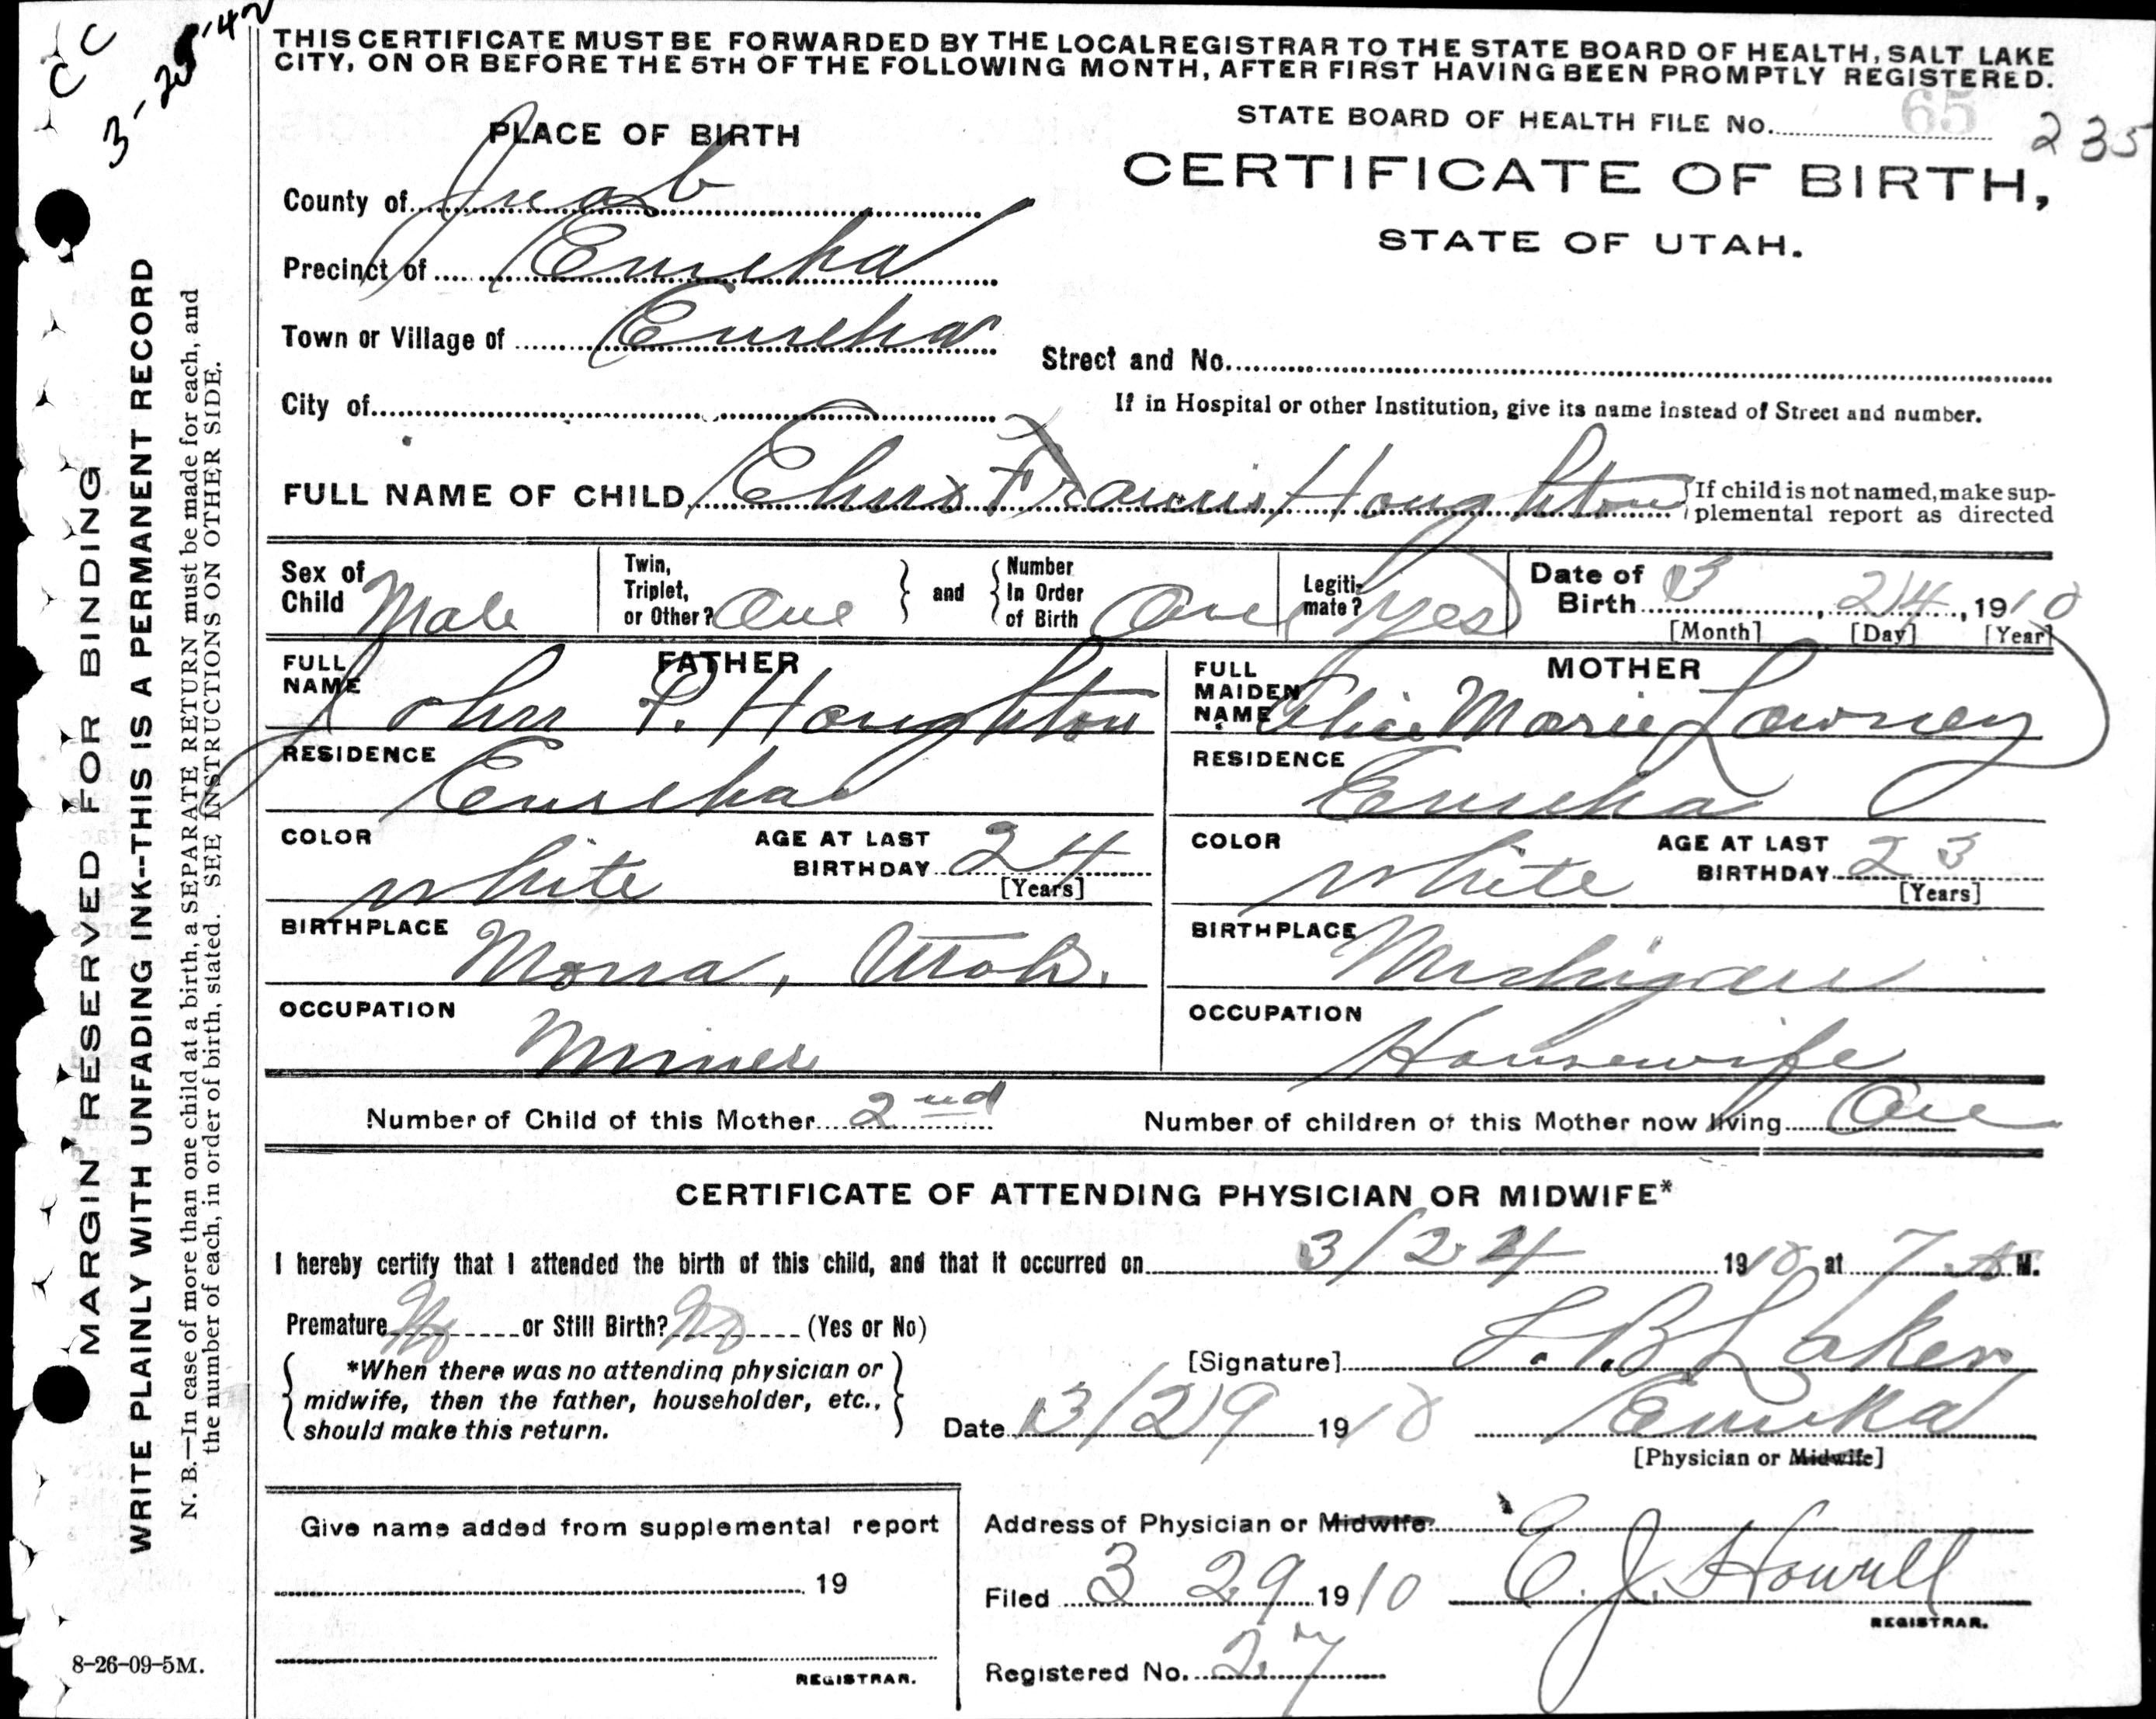 CC
3-25-42
THIS CERTIFICATE MUST BE FORWARDED BY THE LOCAL REGISTRAR TO THE STATE BOARD OF HEALTH, SALT LAKE
CITY, ON OR BEFORE THE 5TH OF THE FOLLOWING MONTH, AFTER FIRST HAVING BEEN PROMPTLY REGISTERED.
STATE BOARD OF HEALTH FILE No. 65 235
PLACE OF BIRTH
CERTIFICATE OF BIRTH,
STATE OF UTAH.
County of Juab
Precinct of Eureka
Town or Village of Eureka
Street and No.
City of
If in Hospital or other Institution, give its name instead of Street and number.
FULL NAME OF CHILD Francis Houghton
If child is not named, make sup-
plemental report as directed
Sex of Child Male
Twin, Triplet, or Other? One
and
Number In Order of Birth One
Legiti-mate? Yes
Date of Birth 3, 24, 1910
[Month] [Day] [Year]
FATHER
FULL NAME John P. Houghton
RESIDENCE Eureka
COLOR White
AGE AT LAST BIRTHDAY 24
[Years]
BIRTHPLACE Mona, Utah.
OCCUPATION Miner
MOTHER
FULL MAIDEN NAME Marie Lowney
RESIDENCE Eureka
COLOR White
AGE AT LAST BIRTHDAY 23
[Years]
BIRTHPLACE Michigan
OCCUPATION Housewife
Number of Child of this Mother 2nd
Number of children of this Mother now living One
CERTIFICATE OF ATTENDING PHYSICIAN OR MIDWIFE*
I hereby certify that I attended the birth of this child, and that it occurred on 3/24 1910 at 7 A M.
Premature No or Still Birth? No (Yes or No)
*When there was no attending physician or
midwife, then the father, householder, etc.,
should make this return.
[Signature] Laker
Date 3/29 1910 Eureka
[Physician or Midwife]
Give name added from supplemental report
19
REGISTRAR.
Address of Physician or Midwife
Filed 3 29 1910 E. J. Howell
REGISTRAR.
Registered No. 27
MARGIN RESERVED FOR BINDING
WRITE PLAINLY WITH UNFADING INK--THIS IS A PERMANENT RECORD
N. B.—In case of more than one child at a birth, a SEPARATE RETURN must be made for each, and
the number of each, in order of birth, stated. SEE INSTRUCTIONS ON OTHER SIDE.
8-26-09-5M.